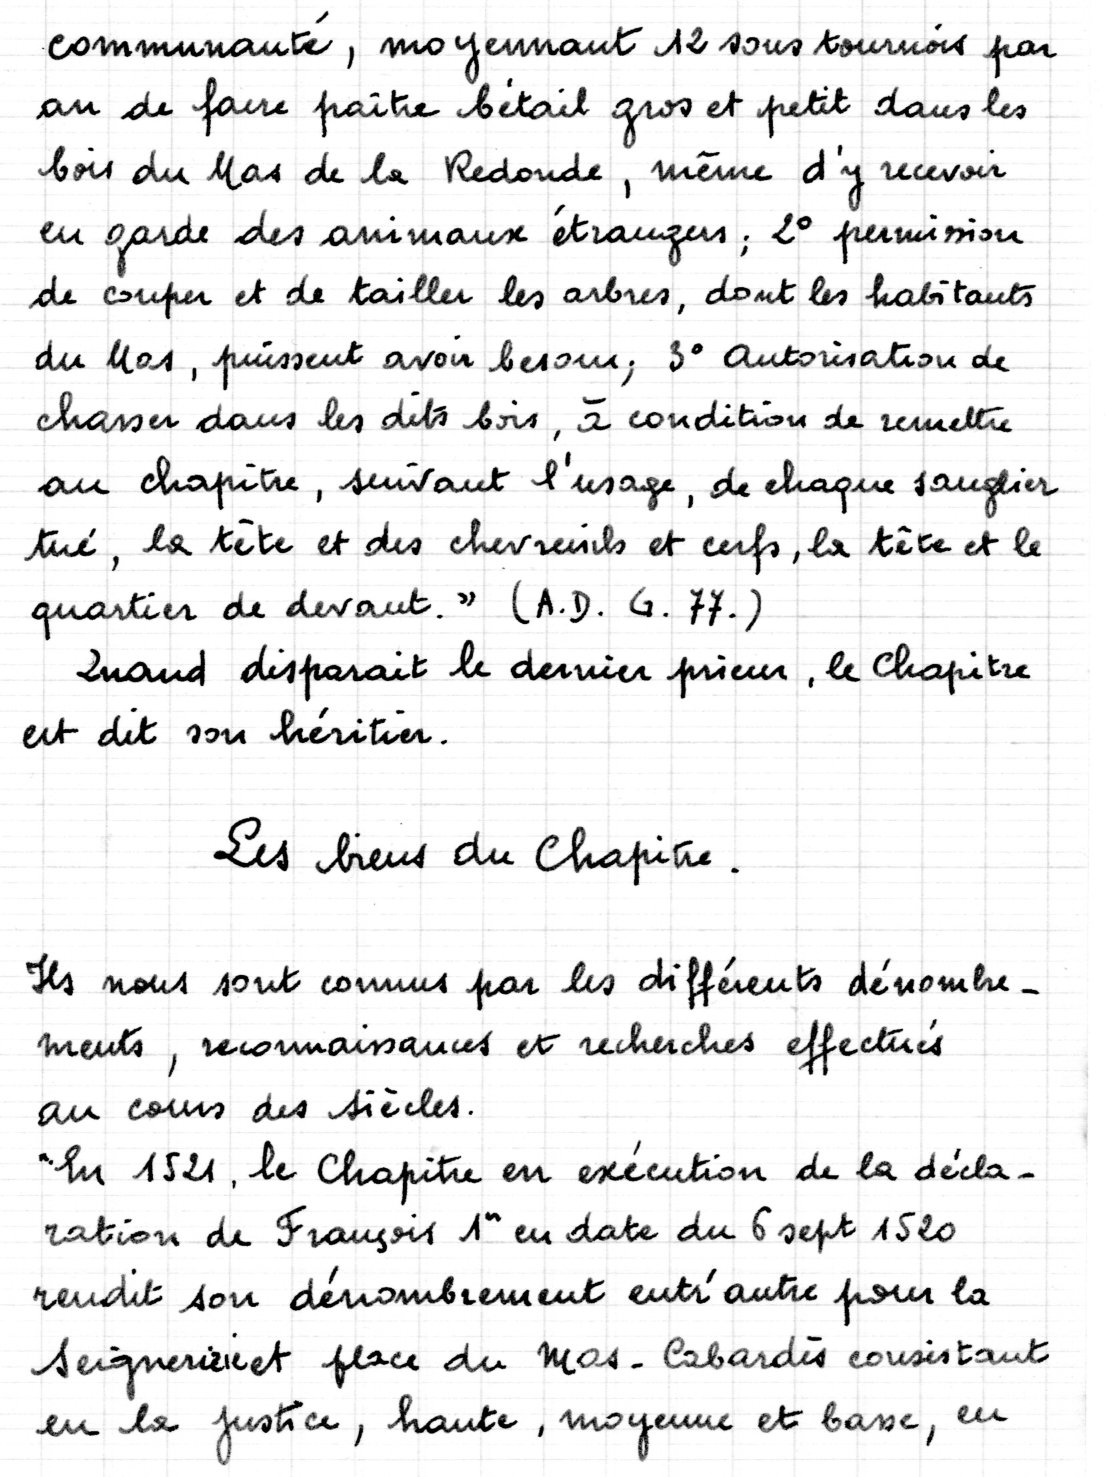 communauté, moyennant 12 sous tournois par
an de faire paître bétail gros et petit dans les
bois du Mas de la Redonde, même d'y recevoir
en garde des animaux étrangers; 2° permission
de couper et de tailler les arbres, dont les habitants
du Mas, puissent avoir besoin; 3° Autorisation de
chasser dans les dits bois, à condition de remettre
au chapître, suivant l'usage, de chaque sanglier
tué, la tête et des chevreuils et cerfs, la tête et le
quartier de devant." (A.D. G. 77.)
Quand disparait le dernier prieur, le Chapitre
est dit son héritier.
Les biens du Chapitre.
Ils nous sont connus par les différents dénombre-
ments, reconnaissances et recherches effectués
au cours des siècles.
"En 1521, le Chapitre en exécution de la décla-
ration de François 1er en date du 6 sept 1520
rendit son dénombrement entr'autre pour la
Seigneurie et place du Mas-Cabardès consistant
en la justice, haute, moyenne et basse, en